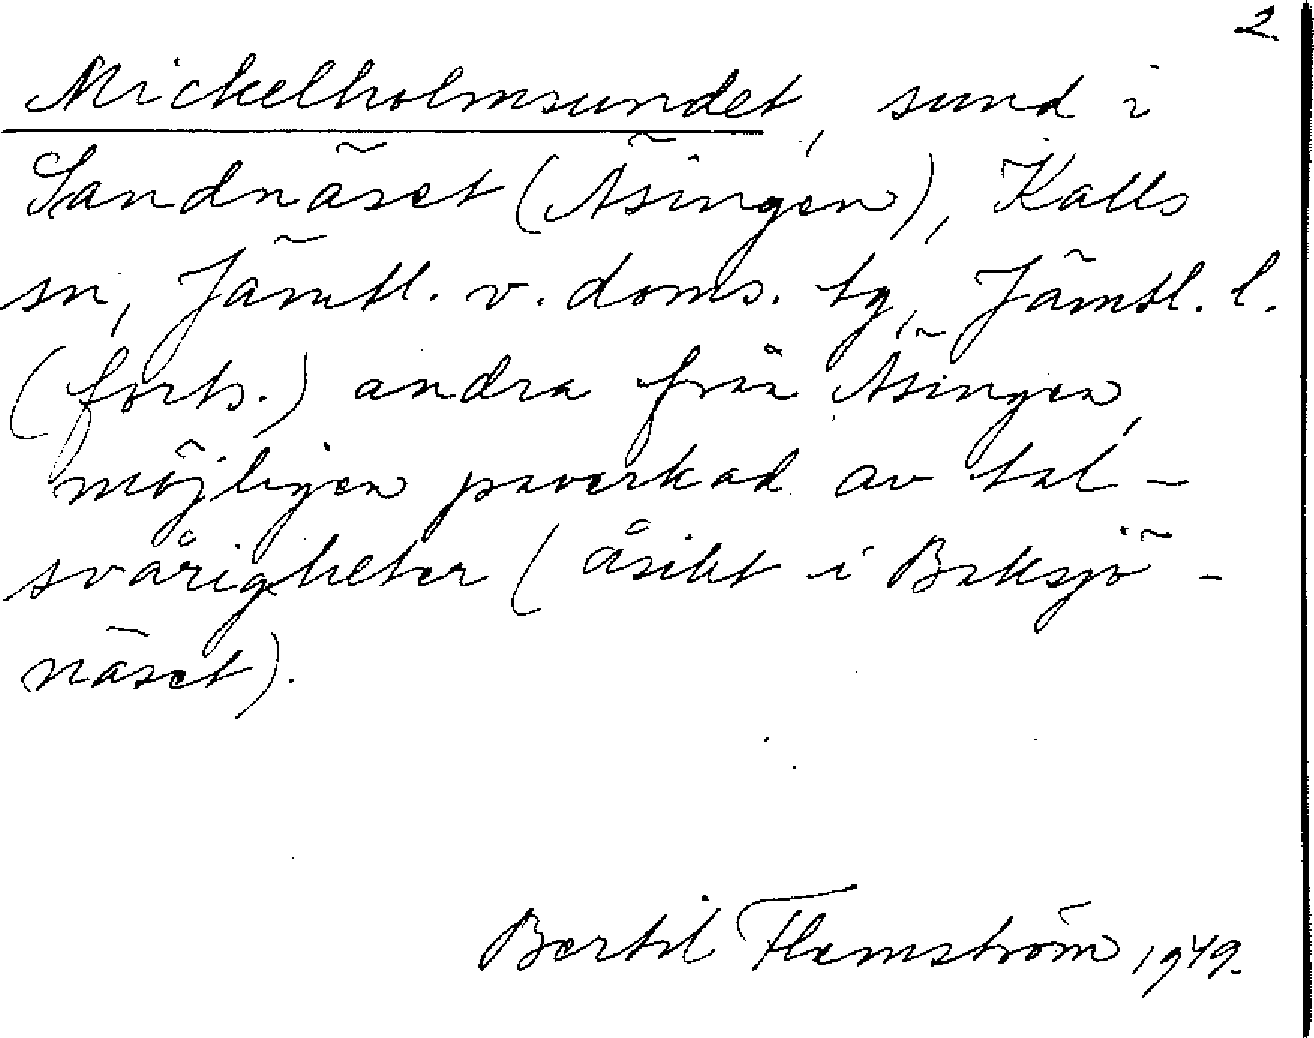 2
Mickelholmsundet, sund i
Sandnäset (Äsingen), Kalls
sn, Jämtl. v. doms. tg, Jämtl. l.
(forts.) andra från Äsingen,
möjligen påverkad av tal-
svårigheter (åsikt i Baksjö-
näset).
Bertil Flemström, 1949.